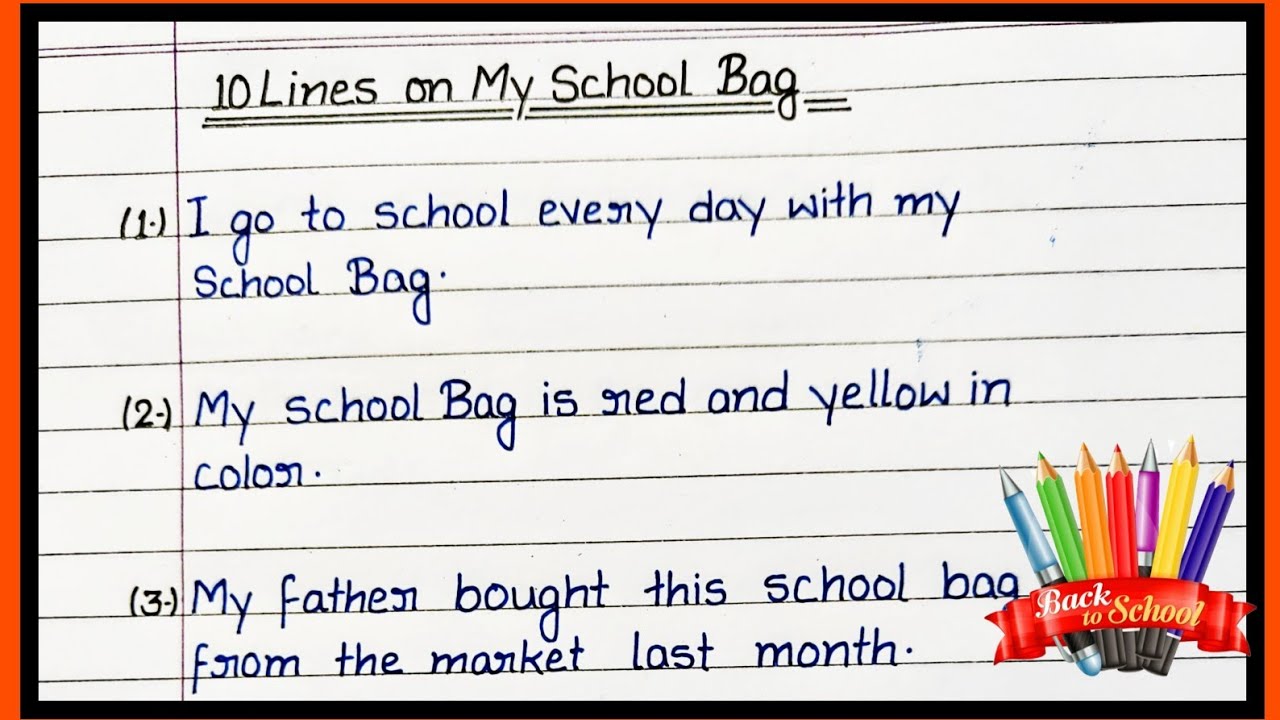 10 Lines on My School Bag
(1.) I go to school every day with my
School Bag.
(2.) My school Bag is red and yellow in
color.
(3.) My father bought this school bag
from the market last month.
Back
to School